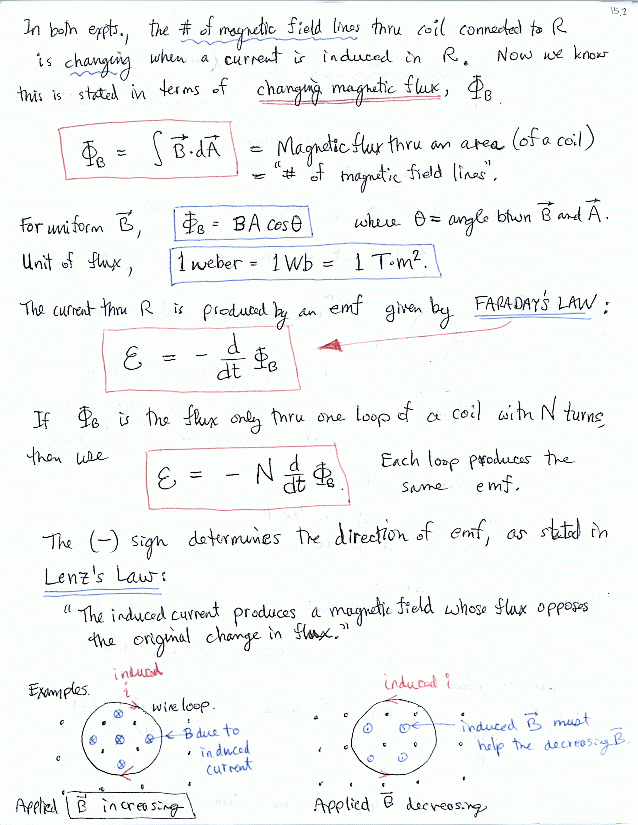 15.2
In both expts., the # of magnetic field lines thru coil connected to R
is changing when a current is induced in R. Now we know
this is stated in terms of changing magnetic flux, Φ_B.
Φ_B = ∫ B⃗·dA⃗ = Magnetic flux thru an area (of a coil)
= "# of magnetic field lines".
For uniform B⃗, Φ_B = BA cosθ where θ = angle btwn B⃗ and A⃗.
Unit of flux, 1 weber = 1 Wb = 1 T·m².
The current thru R is produced by an emf given by FARADAY'S LAW:
ℰ = - d/dt Φ_B
If Φ_B is the flux only thru one loop of a coil with N turns,
then use ℰ = - N d/dt Φ_B. Each loop produces the
same emf.
The (-) sign determines the direction of emf, as stated in
Lenz's Law:
"The induced current produces a magnetic field whose flux opposes
the original change in flux."
Examples.
induced
i
wire loop.
B due to
induced
current
Applied B⃗ increasing
induced i
induced B⃗ must
help the decreasing B⃗.
Applied B⃗ decreasing